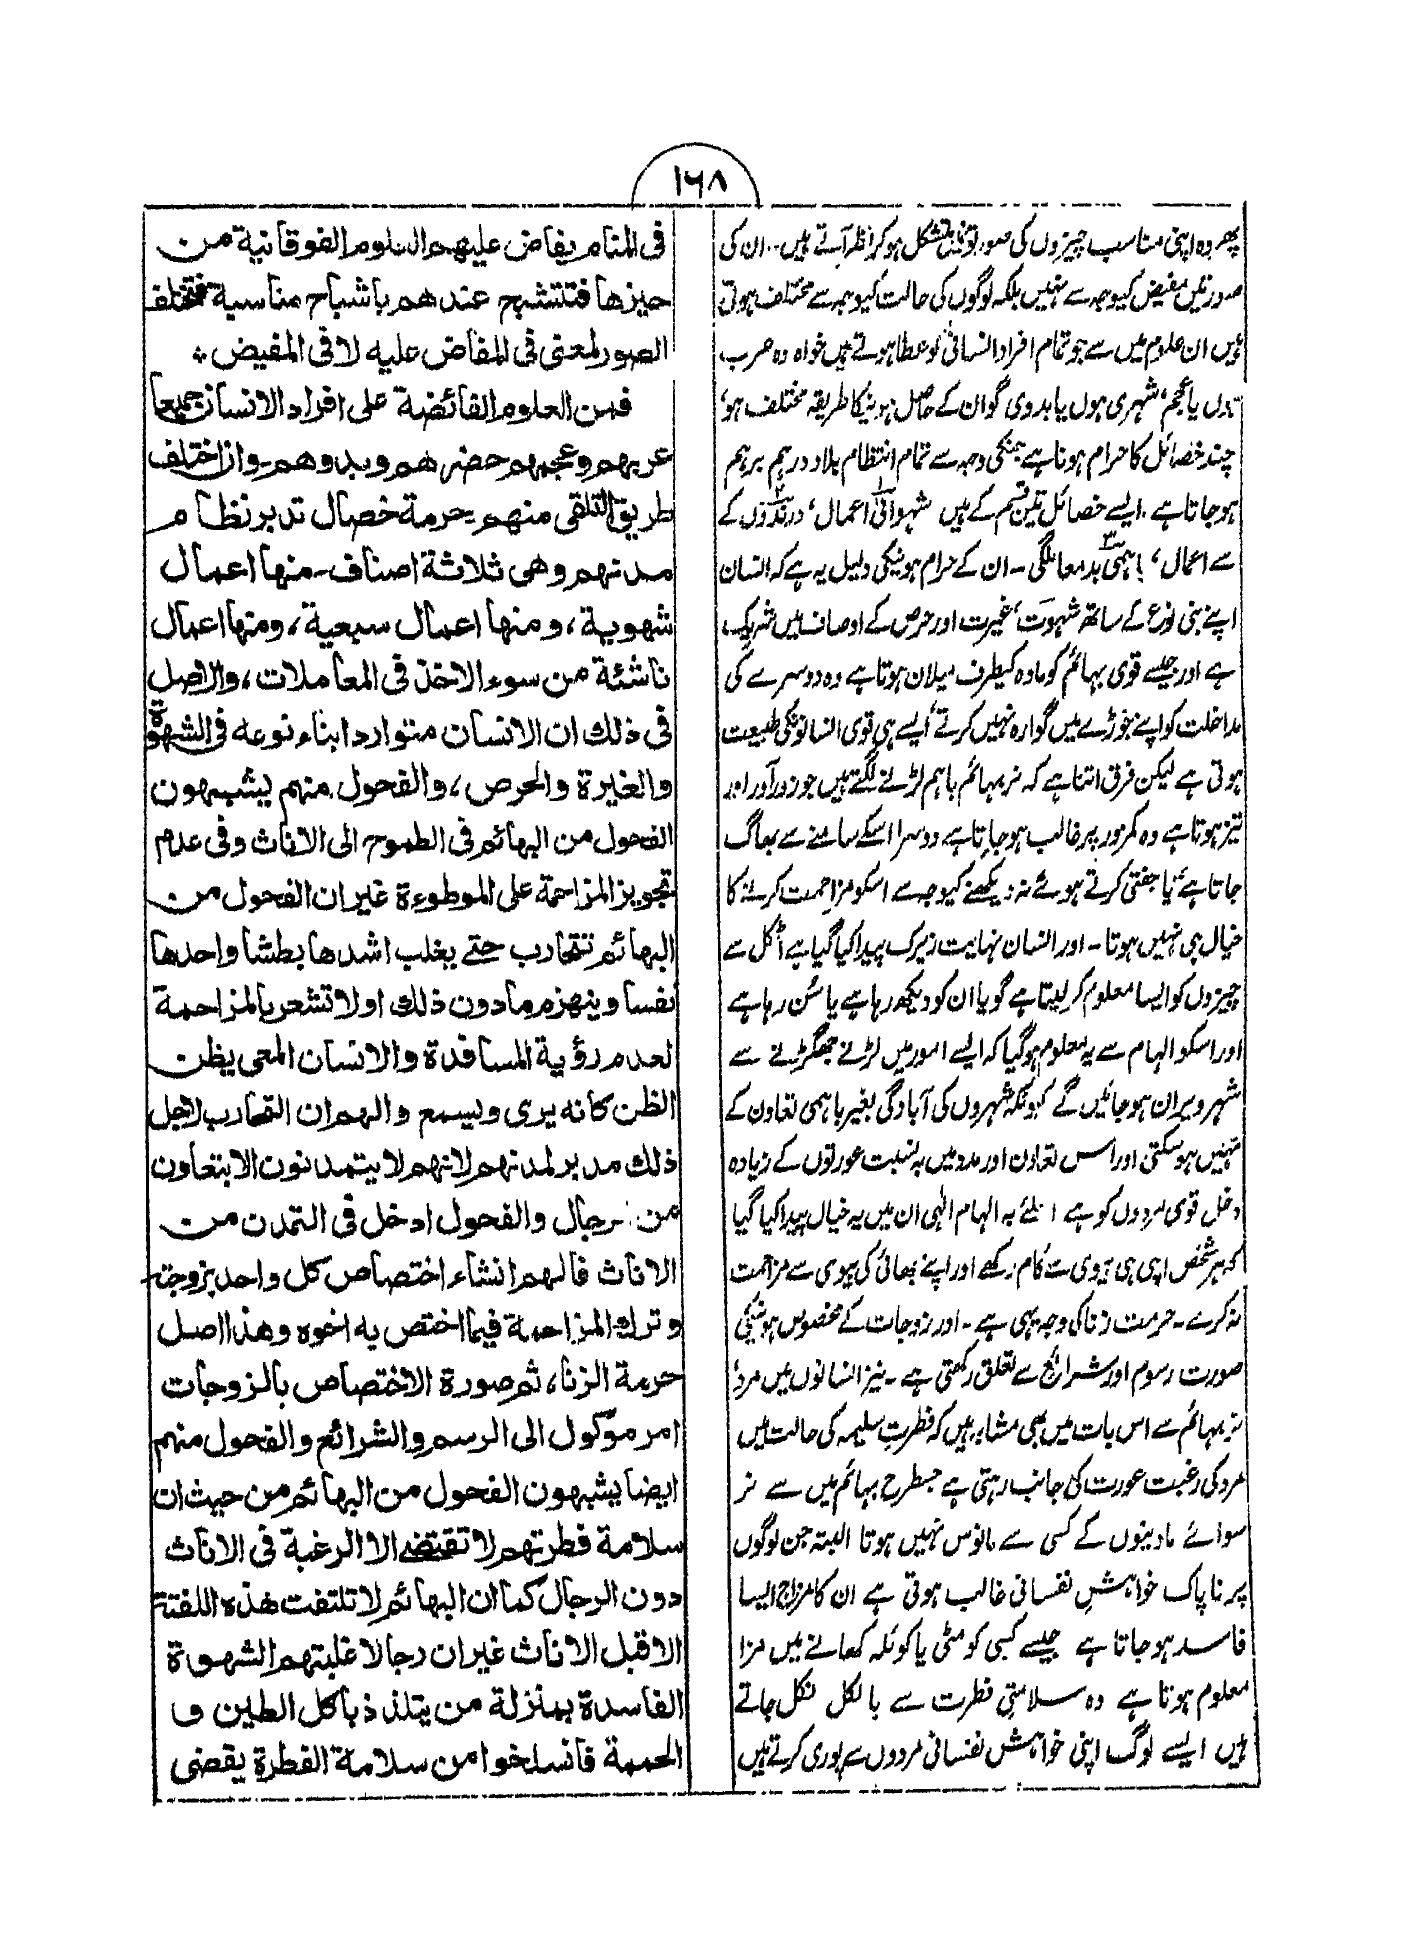 ۱۶۸
پھر وہ اپنی مناسب چیزوں کی صورتوں میں متشکل ہو کر نظر آتے ہیں۔۔ ان کی
صورتیں مفیض کیوجہ سے نہیں بلکہ لوگوں کی حالت کیوجہ سے مختلف ہوتی
ہیں ان علوم میں سے جو تمام افراد انسانی کو عطا ہوتے ہیں خواہ وہ عرب
ہوں یا عجم، شہری ہوں یا بدوی گو ان کے حاصل ہونیکا طریقہ مختلف ہو،
چند خصائل کا حرام ہونا ہے جنکی وجہ سے تمام انتظام بلاد درہم برہم
ہو جاتا ہے۔ ایسے خصائل تین قسم کے ہیں شہوانی اعمال، درندوں کے
سے اعمال، باہمی بد معاملگی۔ ان کے حرام ہونیکی دلیل یہ ہے کہ انسان
اپنے بنی نوع کے ساتھ شہوت، غیرت اور حرص کے اوصاف میں شریک
ہے اور جیسے قوی بہائم کو مادہ کیطرف میلان ہوتا ہے وہ دوسرے کی
مداخلت کو اپنے جوڑے میں گوارہ نہیں کرتے ایسے ہی قوی انسانونکی طبیعت
ہوتی ہے لیکن فرق اتنا ہے کہ نر بہائم باہم لڑنے لگتے ہیں جو زور آور اور
تیز ہوتا ہے وہ کمزور پر غالب ہو جاتا ہے دوسرا اسکے سامنے سے بھاگ
جاتا ہے، یا جفتی کرتے ہوئے نہ دیکھنے کیوجہ سے اسکو مزاحمت کرنے کا
خیال ہی نہیں ہوتا۔ اور انسان نہایت زیرک پیدا کیا گیا ہے اٹکل سے
چیزوں کو ایسا معلوم کر لیتا ہے گویا ان کو دیکھ رہا ہے یا سن رہا ہے
اور اسکو الہام سے یہ معلوم ہو گیا کہ ایسے امور میں لڑنے جھگڑنے سے
شہر ویران ہو جائیں گے کیونکہ شہروں کی آبادگی بغیر باہمی تعاون کے
نہیں ہو سکتی اور اس تعاون اور مدد میں بہ نسبت عورتوں کے زیادہ
دخل قوی مردوں کو ہے اسلئے بہ الہام الٰہی ان میں یہ خیال پیدا کیا گیا
کہ ہر شخص اپنی ہی بیوی سے کام رکھے اور اپنے بھائی کی بیوی سے مزاحمت
نہ کرے۔ حرمت زنا کی وجہ یہی ہے۔ اور زوجات کے مخصوص ہونیکی
صورت رسوم اور شرائع سے تعلق رکھتی ہے۔ نیز انسانوں میں مرد
نر بہائم سے اس بات میں بھی مشابہ ہیں کہ فطرتِ سلیمہ کی حالت میں
مرد کی رغبت عورت کی جانب رہتی ہے جسطرح بہائم میں سے نر
سوائے مادینوں کے کسی سے مانوس نہیں ہوتا البتہ جن لوگوں
پر ناپاک خواہشِ نفسانی غالب ہوتی ہے ان کا مزاج ایسا
فاسد ہو جاتا ہے جیسے کسی کو مٹی یا کوئلہ کھانے میں مزا
معلوم ہوتا ہے وہ سلامتی فطرت سے بالکل نکل جاتے
ہیں ایسے لوگ اپنی خواہش نفسانی مردوں سے پوری کرتے ہیں
فی المنام یفاض علیہم العلوم الفوقانیة من
حیزها فتتشبح عندهم باشباح مناسبة فتختلف
الصور لمعنی فی المفاض علیه لا فی المفیض ؞
فمن العلوم الفائضة علی افراد الانسان جمیعا
عربهم وعجمهم حضرهم وبدوهم۔ وان اختلف
طریق التلقی منهم۔ حرمة خصال تدبر نظام
مدنهم وهی ثلاثة اصناف۔ منها اعمال
شهویة، ومنها اعمال سبعیة، ومنها اعمال
ناشئة من سوء الاخذ فی المعاملات، والاصل
فی ذلك ان الانسان متوارد ابناء نوعه فی الشهوة
والغیرة والحرص، والفحول منهم یشبهون
الفحول من البهائم فی الطموح الی الاناث وفی عدم
تجویز المزاحمة علی الموطوءة غیر ان الفحول من
البهائم تتحارب حتے یغلب اشدها بطشا واحدها
نفسا وینهزم مادون ذلك او لا تشعر بالمزاحمة
لعدم رؤیة المسافدة والانسان المعی یظن
الظن كانه یری ویسمع والهم ان التحارب لاجل
ذلك مدبر لمدنهم لانهم لا یتمدنون الا بتعاون
من رجال والفحول ادخل فی التمدن من
الاناث فالهم انشاء اختصاص كل واحد بزوجته
وترك المزاحمة فیما اختص به اخوه وهذا اصل
حرمة الزنا، ثم صورة الاختصاص بالزوجات
امر موكول الی الرسم والشرائع والفحول منهم
ایضا یشبهون الفحول من البهائم من حیث ان
سلامة فطرتهم لا تقتضے الا الرغبة فی الاناث
دون الرجال كما ان البهائم لا تلتفت هذه اللفتة
الا قبل الاناث غیر ان رجالا غلبتهم الشهوة
الفاسدة بمنزلة من یتلذذ باكل الطین و
الحممة فانسلخوا من سلامة الفطرة یقضی